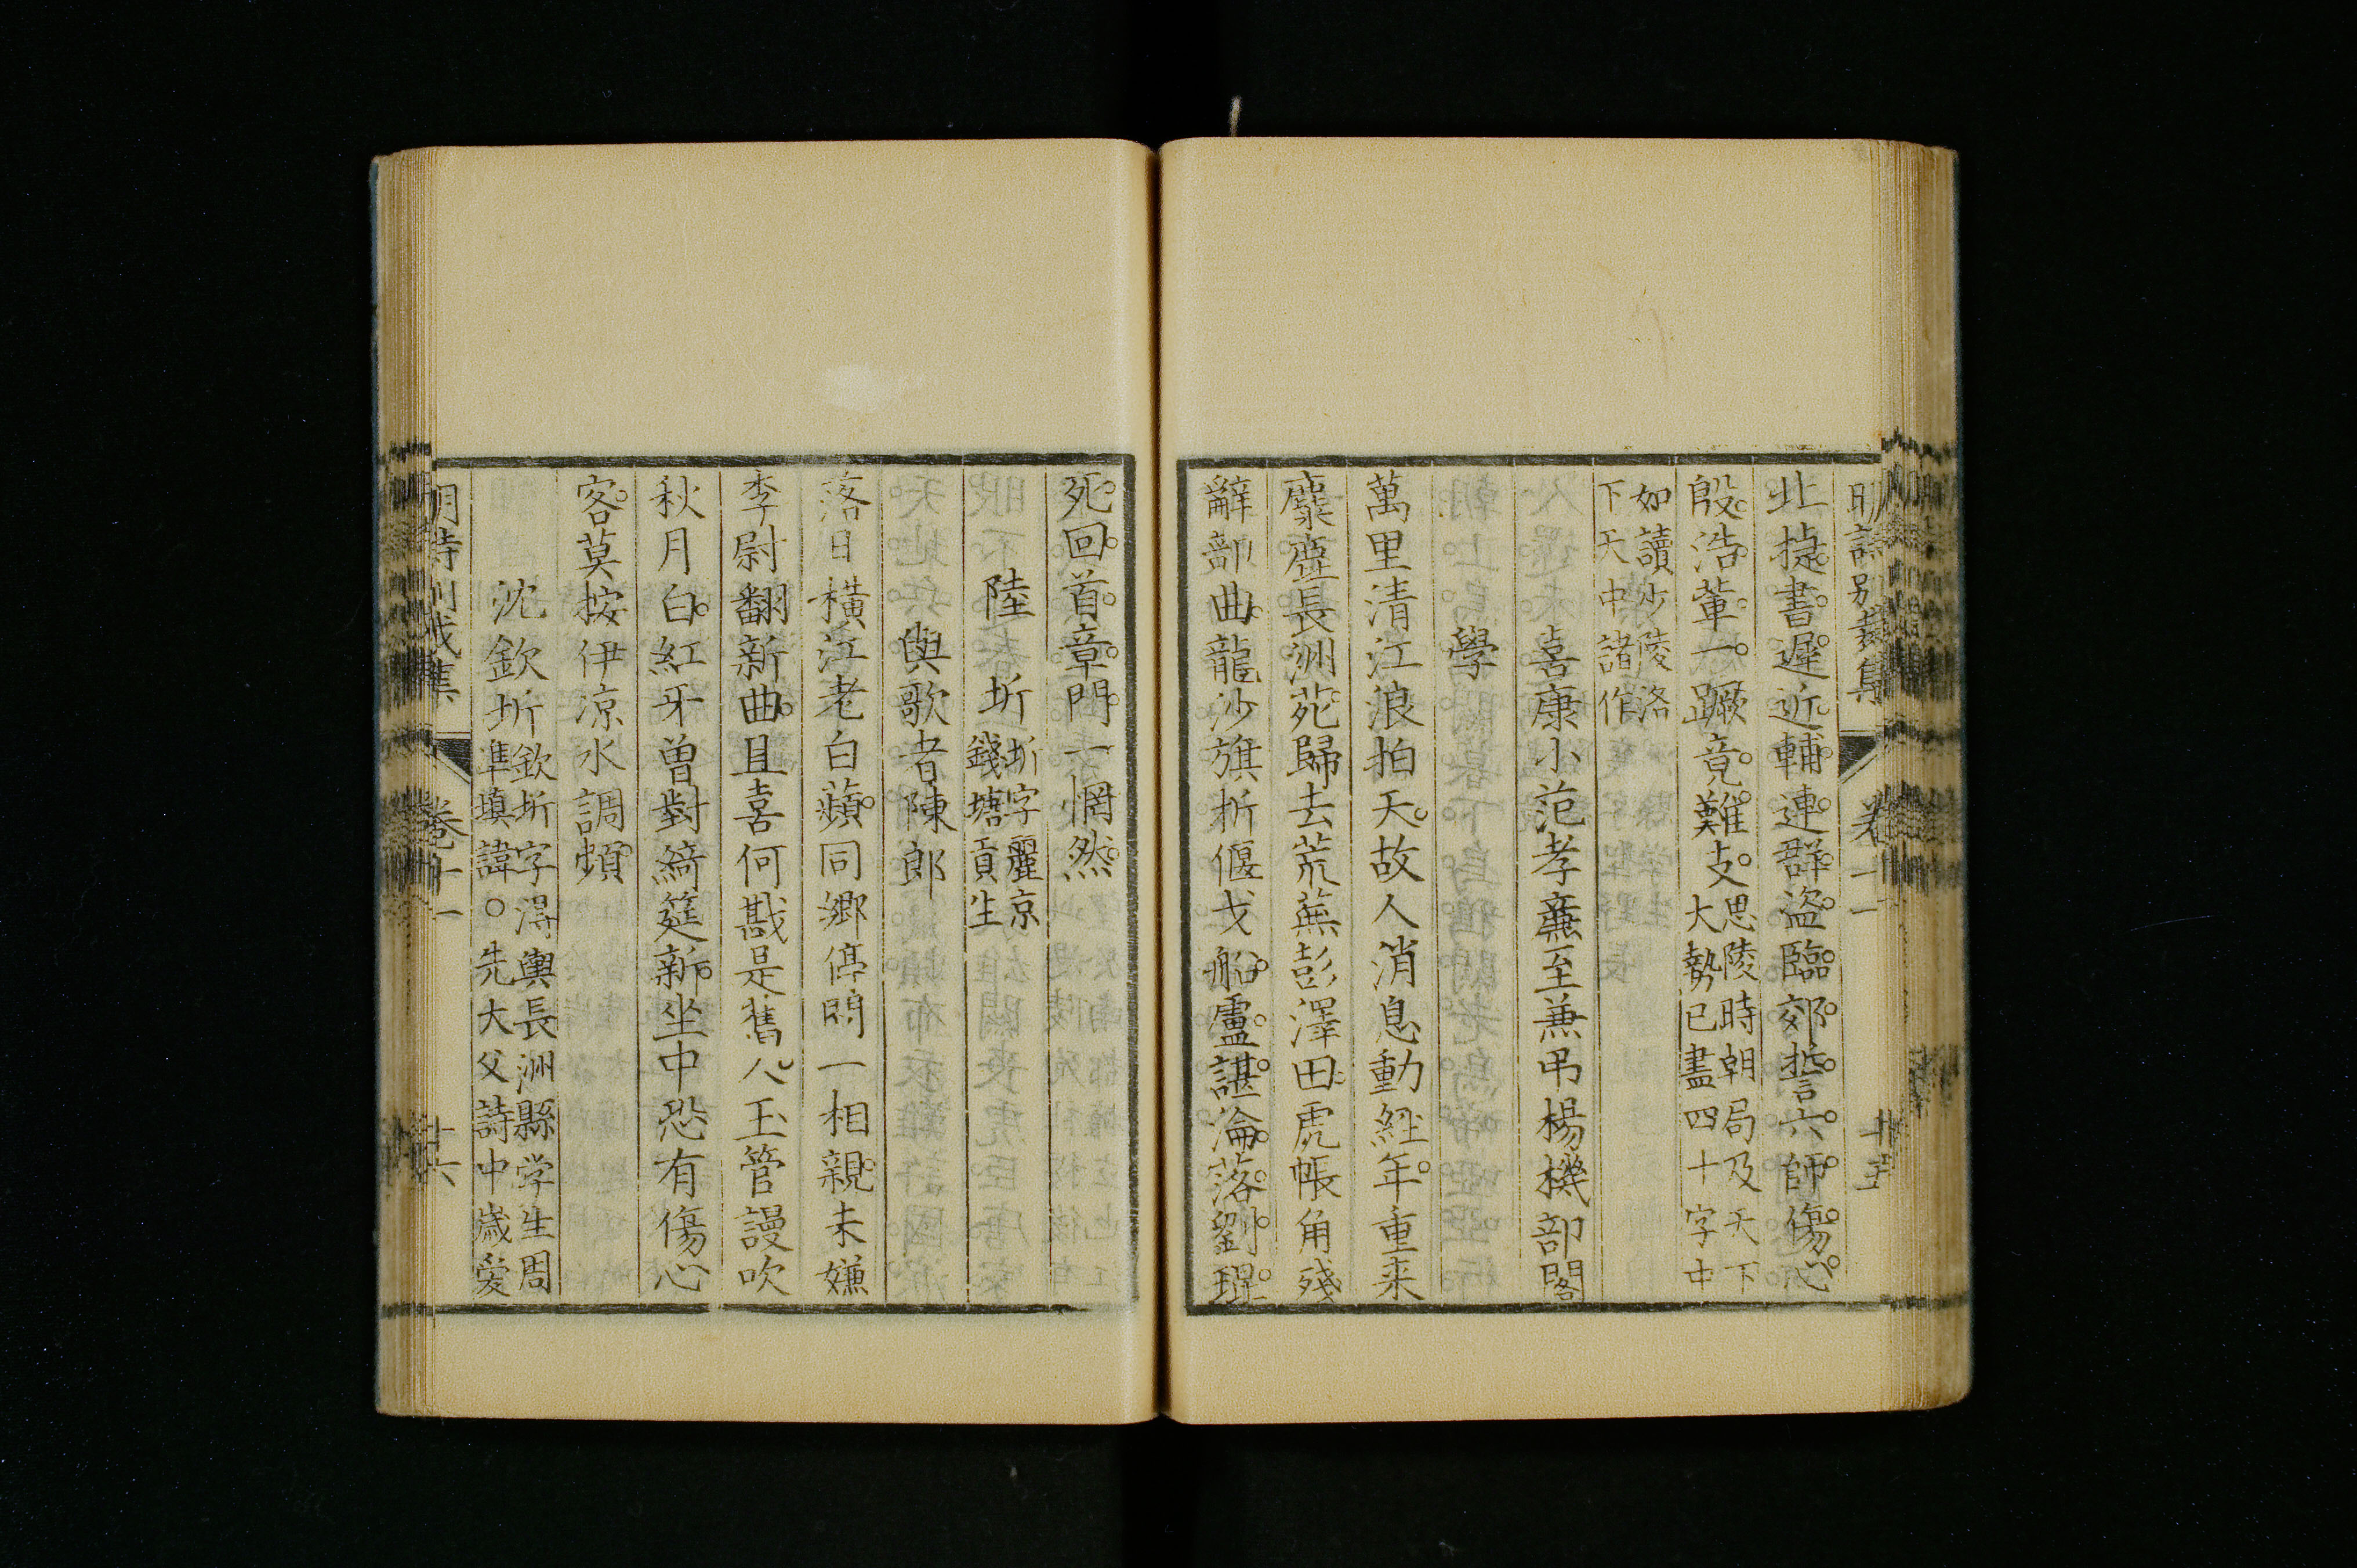 明詩別裁集 卷十一 十五
北捷書遲近輔連群盜臨郊誓六師傷心
殷浩輩一蹶竟難支思陵時朝局及天下
大勢已盡四十字中
如讀少陵洛
下天中諸作
喜康小范孝廉至兼弔楊機部閣
學
萬里清江浪拍天故人消息動經年重来
麋麈長洲苑歸去荒蕪彭澤田虎帳角殘
辭部曲龍沙旗折偃戈船盧諶淪落劉琨
死回首章門一惘然
陸圻圻字麗京
錢塘貢生
與歌者陳郎
落日橫江老白蘋同鄉停問一相親未嫌
李尉翻新曲且喜何戡是舊人玉管謾吹
秋月白紅牙曾對綺筵新坐中恐有傷心
客莫按伊凉水調頻
沈欽圻欽圻字得輿長洲縣学生周
準填諱○先大父詩中歳爰
明詩別裁集 卷十一 十六